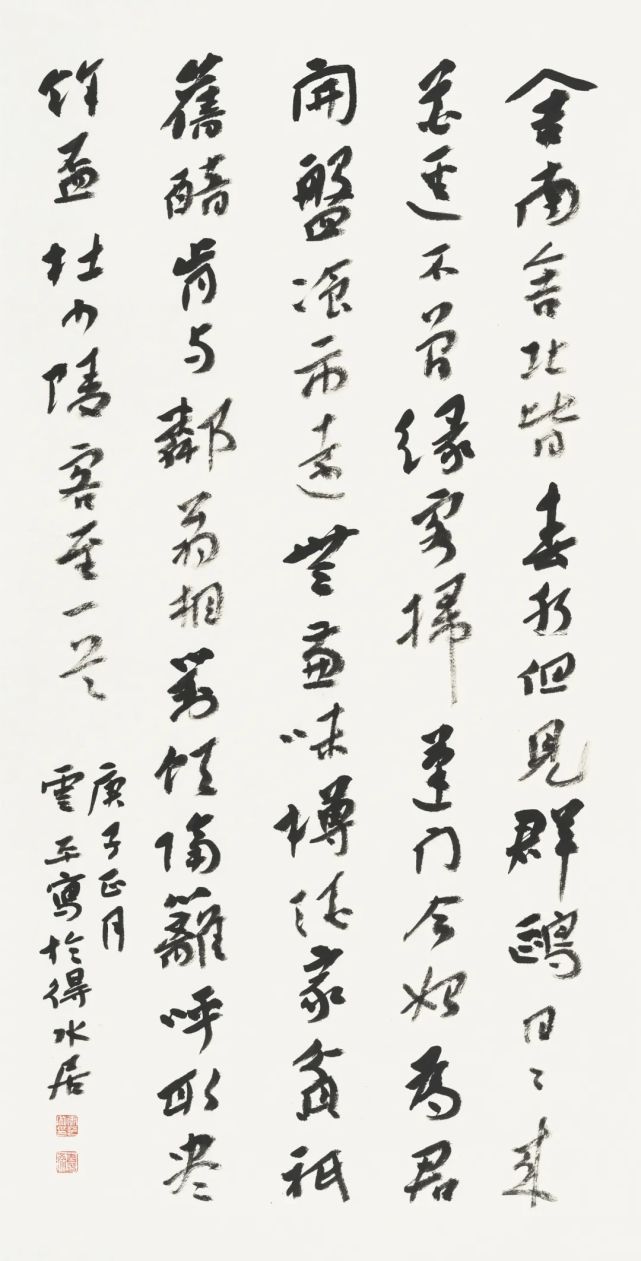 舍南舍北皆春水但見群鷗日々来
花逕不曾緣客掃蓬門今始為君
開盤飧市遠無兼味樽酒家貧祇
舊醅肯与鄰翁相對飲隔籬呼取尽
餘盃杜少陵客至一首
庚子正月
雲平寫於得水居